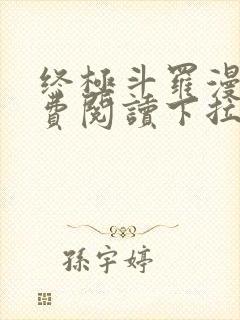 终極斗羅漫
費閱讀下拉
孫宇婷